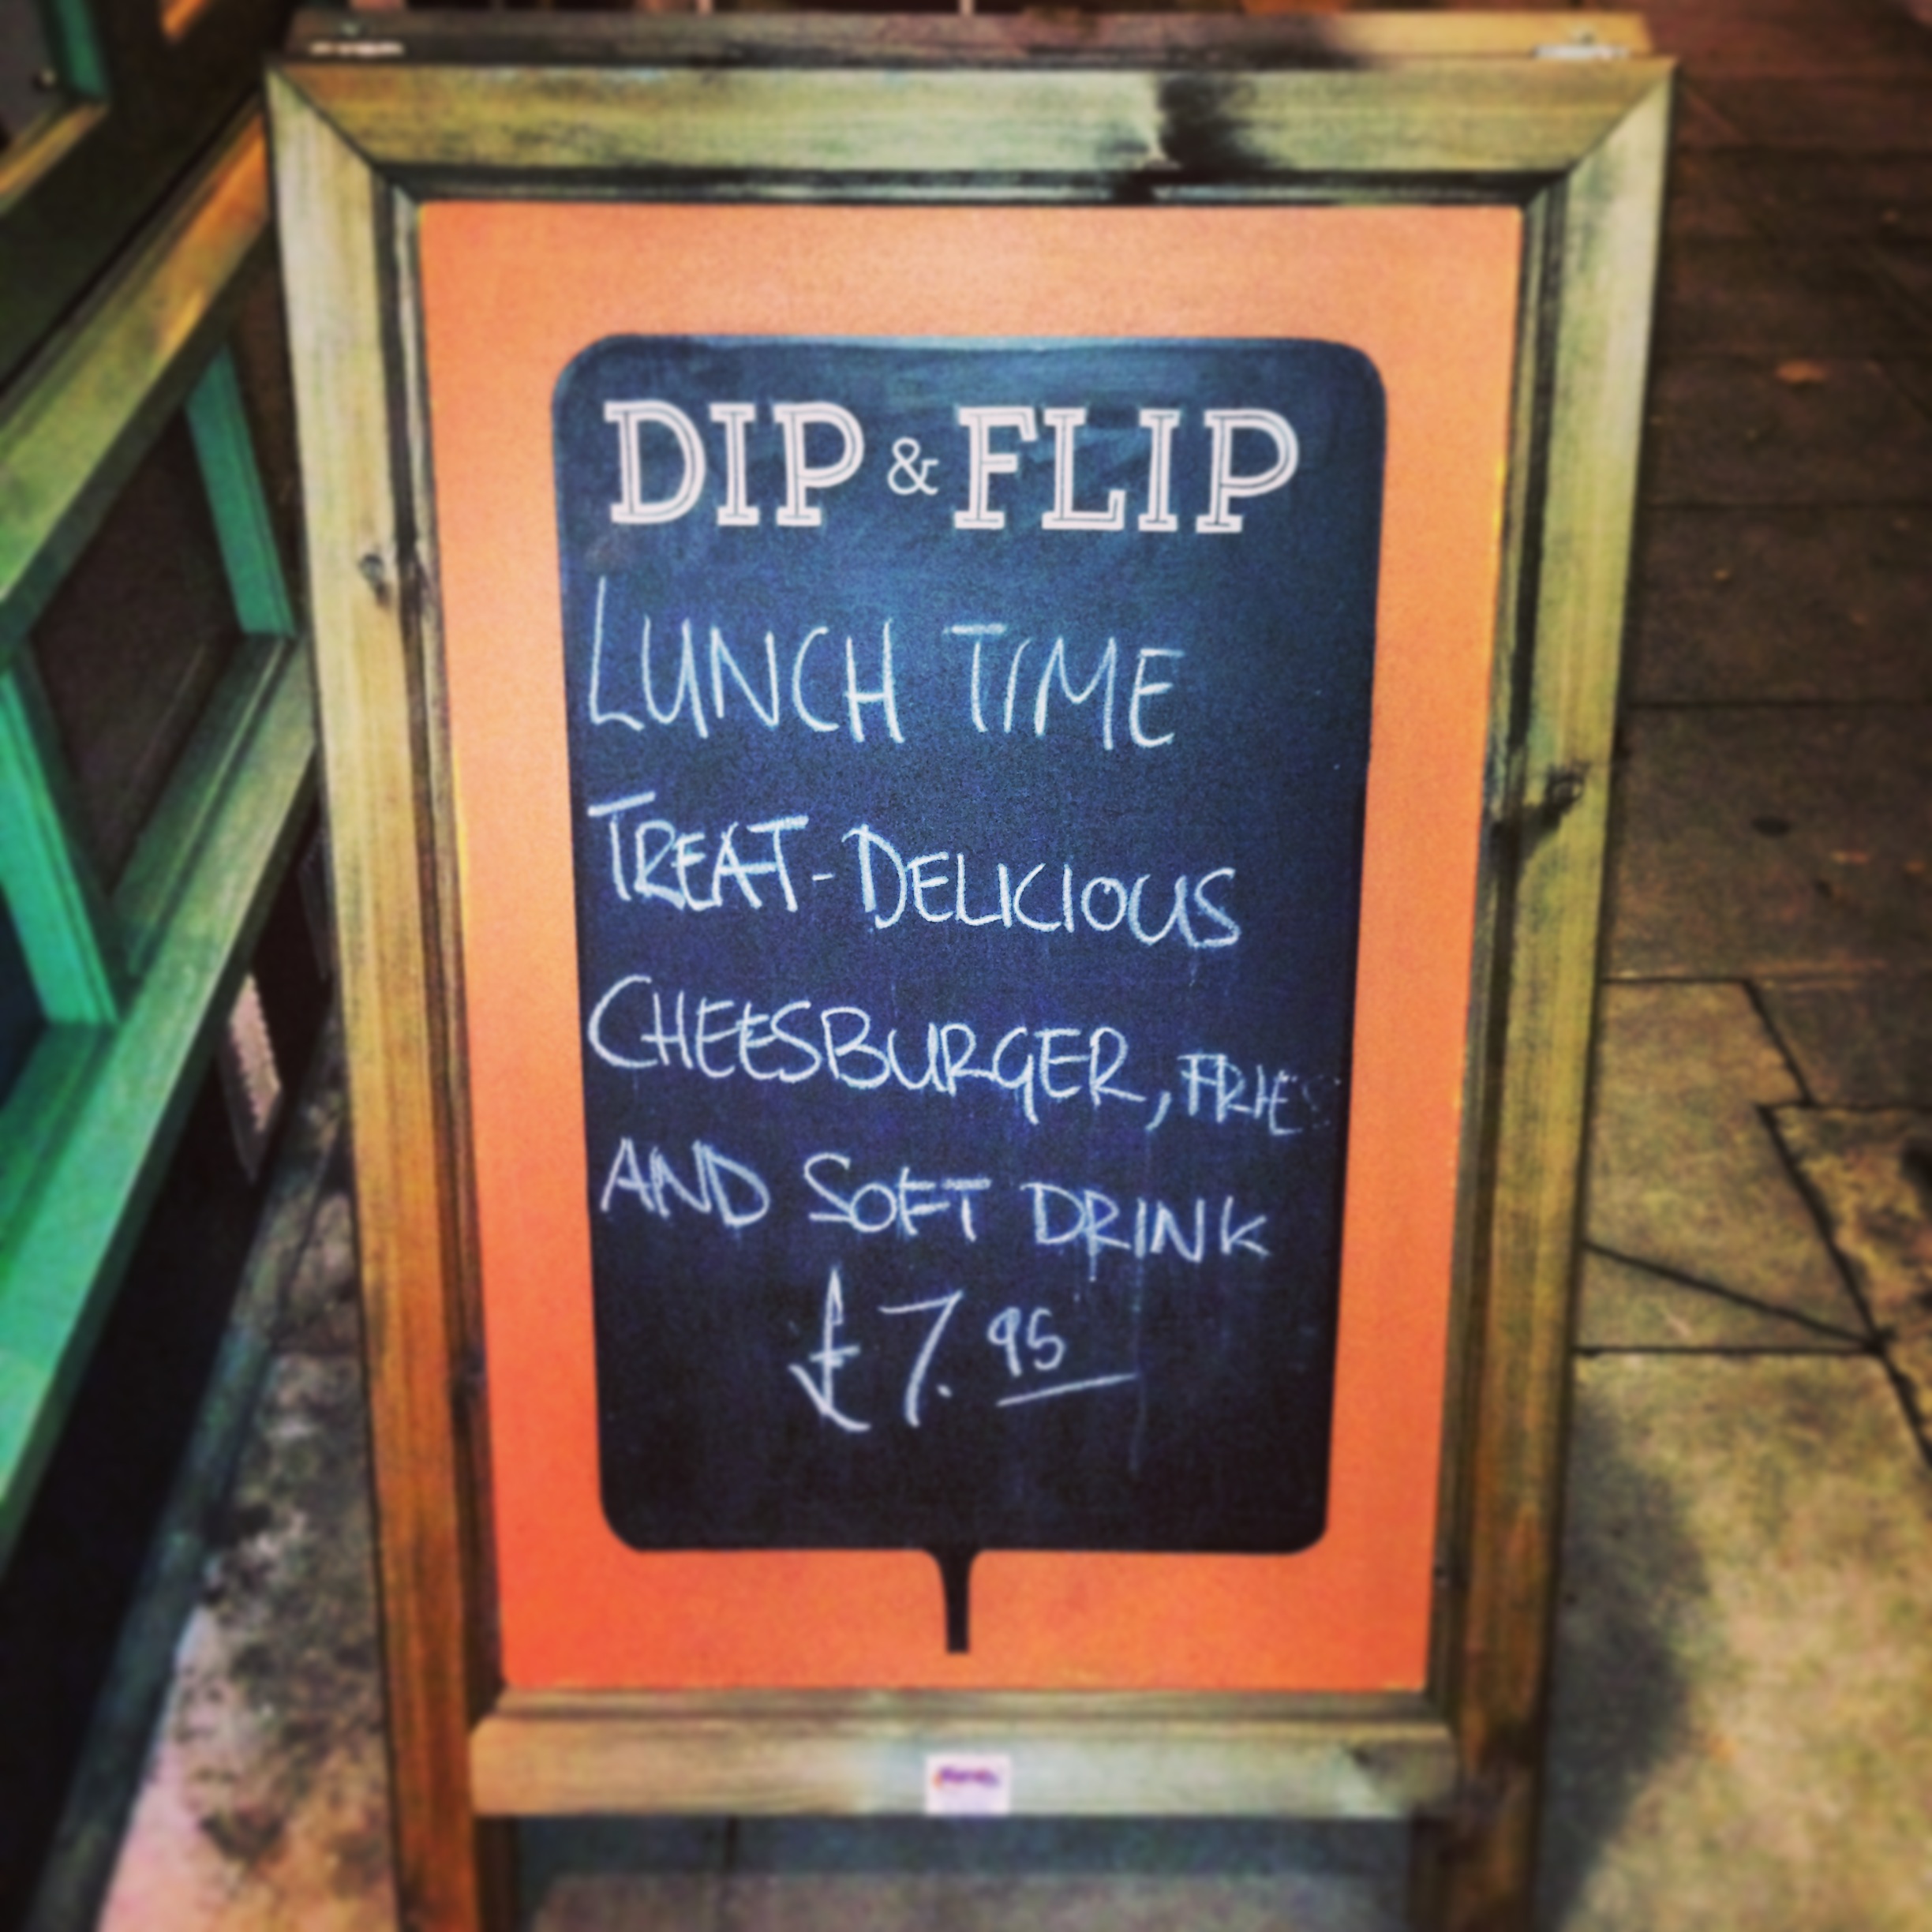 DIP & FLIP
LUNCH TIME
TREAT - DELICIOUS
CHEESBURGER, FRIES
AND SOFT DRINK
£7.95